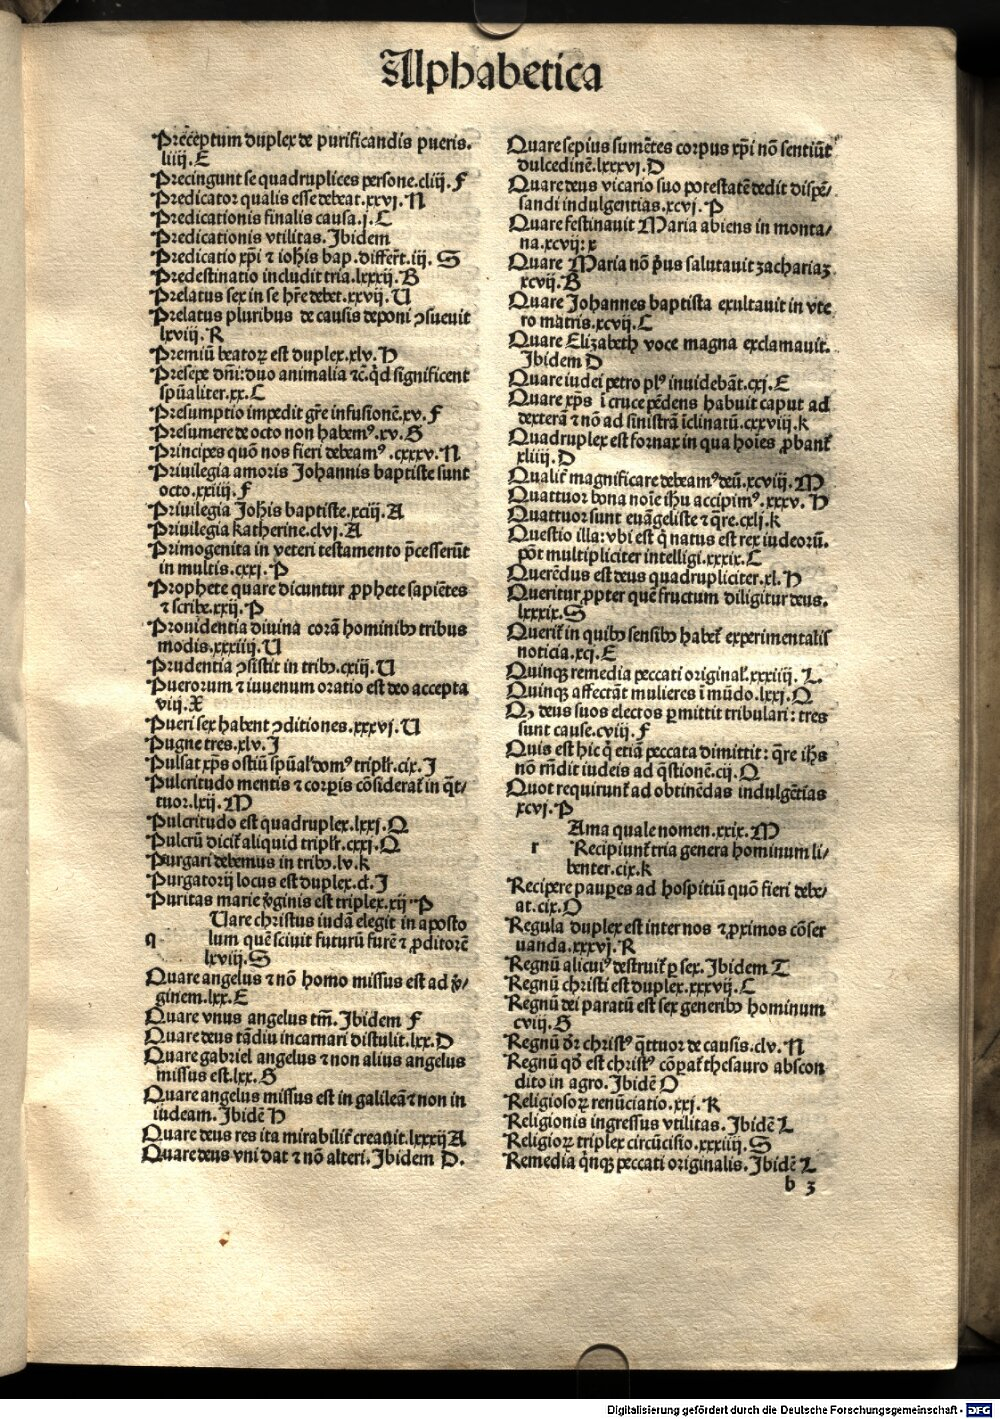 Alphabetica
Preceptum duplex de purificandis pueris.
liiij. E
Precingunt se quadruplices persone.cliij. F
Predicator qualis esse debeat.xxvj. N
Predicationis finalis causa.j. C
Predicationis vtilitas. Ibidem
Predicatio xp̄i ⁊ ioh̄is bap. differt̄. iij. S
Predestinatio includit tria.lxxxij. B
Prelatus sex in se hr̄e debet.xxvij. U
Prelatus pluribus de causis deponi ꝯsueuit
lxviij. R
Premiū beatoꝝ est duplex.xlv. H
Presepe dn̄i: duo animalia ⁊c̄. qd̄ significent
spūaliter.xx. C
Presumptio impedit gr̄e infusionē.xv. F
Presumere de octo non habemꝰ.xv. G
Principes quō nos fieri debeamꝰ.cxxxv. N
Priuilegia amoris Johannis baptiste sunt
octo.xxiiij. F
Priuilegia Joh̄is baptiste.xciij. A
Priuilegia katherine.clvj. A
Primogenita in veteri testamento p̄cesserūt
in multis.cxxj. P
Prophete quare dicuntur ꝓphete sapiētes
⁊ scribe.xxij. P
Prouidentia diuina corā hominibꝫ tribus
modis.xxxiiij. U
Prudentia ꝯsistit in tribꝫ.cxiij. U
Puerorum ⁊ iuuenum oratio est deo accepta
viij. X
Pueri sex habent ꝯditiones.xxxvj. U
Pugne tres.xlv. I
Pulsat xp̄s ostiū spūal̄ domꝰ tripl̄r.cix. I
Pulcritudo mentis ⁊ corꝑis cōsiderat̄ in q̄t/
tuor.lxij. M
Pulcritudo est quadruplex.lxxj. Q
Pulcrū dicit̄ aliquid tripl̄r.cxxj. Q
Purgari debemus in tribꝫ.lv. k
Purgatorij locus est duplex.cl. I
Puritas marie v̄ginis est triplex.xij P
q
Uare christus iudā elegit in aposto
lum quē sciuit futurū furē ⁊ ꝓditorē
lxviij. S
Quare angelus ⁊ nō homo missus est ad v̄/
ginem.lxx. E
Quare vnus angelus tm̄. Ibidem F
Quare deus tādiu incarnari distulit.lxx. D
Quare gabriel angelus ⁊ non alius angelus
missus est.lxx. G
Quare angelus missus est in galileā ⁊ non in
iudeam. Ibidē H
Quare deus res ita mirabilit̄ creauit.lxxxij A
Quare deus vni dat ⁊ nō alteri. Ibidem D.
Quare sepius sumētes corpus xp̄i nō sentiūt
dulcedinē.lxxxvj. D
Quare deus vicario suo potestatē dedit dispē/
sandi indulgentias.xcvj. P
Quare festinauit Maria abiens in monta/
na.xcvij: x
Quare Maria nō p̄us salutauit zachariaꝫ
xcvij. B
Quare Johannes baptista exultauit in vte
ro matris.xcvij. C
Quare Elizabeth voce magna exclamauit.
Ibidem D
Quare iudei petro plꝰ inuidebāt.cxj. E
Quare xp̄s ī cruce pēdens habuit caput ad
dexterā ⁊ nō ad sinistrā īclinatū.cxxviij. k
Quadruplex est fornax in qua hoīes ꝓbant̄
xliiij. D
Qualit̄ magnificare debeamꝰ deū.xcviij. M
Quattuor bona noīe ih̄u accipimꝰ.xxxv. H
Quattuor sunt euāgeliste ⁊ q̄re.cxlj. k
Questio illa: vbi est q̄ natus est rex iudeorū.
pōt multipliciter intelligi.xxxix. C
Querēdus est deus quadrupliciter.xl. H
Queritur ꝓpter quē fructum diligitur deus.
lxxxix. S
Querit̄ in quibꝫ sensibꝫ habet̄ experimentalis
noticia.xcj. E
Quinqꝫ remedia peccati original̄.xxxiiij. L.
Quinqꝫ affectāt mulieres ī mūdo.lxxj. Q
Qꝫ deus suos electos ꝑmittit tribulari: tres
sunt cause.cviij. F
Quis est hic q̄ etiā peccata dimittit: q̄re ih̄s
nō rn̄dit iudeis ad q̄stionē.cij. Q
Quot requirunt̄ ad obtinēdas indulgētias
xcvj. P
r
Ama quale nomen.xxix. M
Recipiunt̄ tria genera hominum li/
benter.cix. k
Recipere pauꝑes ad hospitiū quō fieri debe/
at.cix. O
Regula duplex est inter nos ⁊ ꝓximos cōser
uanda.xxxvj. R
Regnū alicuiꝰ destruit̄ ꝑ sex. Ibidem T
Regnū christi est duplex.xxxvij. C
Regnū dei paratū est sex generibꝫ hominum
cviij. G
Regnū dr̄ christꝰ q̄ttuor de causis.clv. N
Regnū qd̄ est christꝰ cōꝑat̄ thesauro abscon
dito in agro. Ibidē O
Religiosoꝝ renūciatio.xxj. R
Religionis ingressus vtilitas. Ibidē L
Religioꝝ triplex circūcisio.xxxiiij. S
Remedia q̄nqꝫ peccati originalis. Ibidē L
b 3
Digitalisierung gefördert durch die Deutsche Forschungsgemeinschaft - DFG